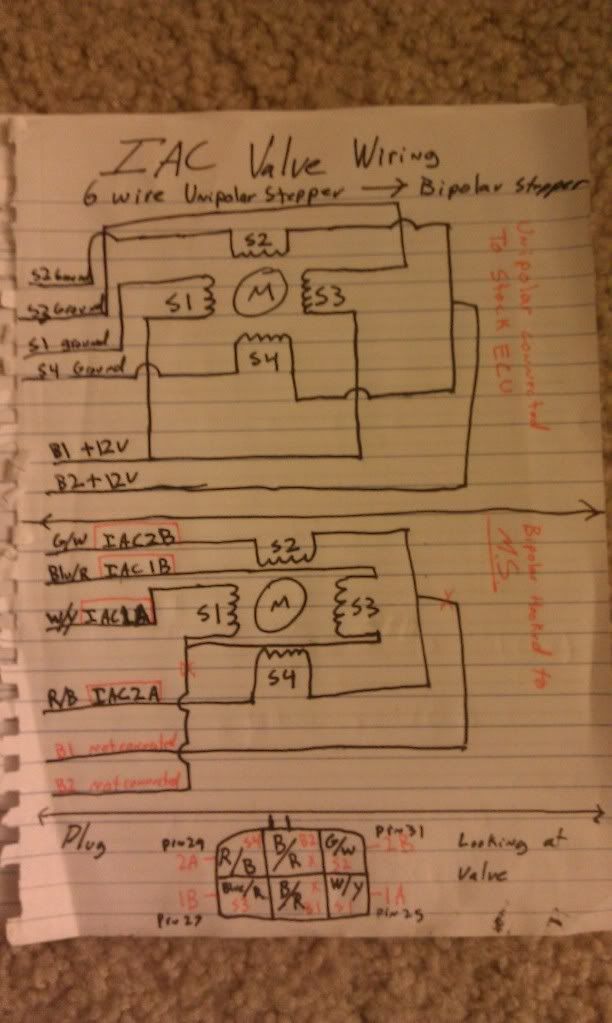 IAC Valve Wiring
6 wire Unipolar Stepper → Bipolar Stepper
S2
S2 Ground
S3 Ground
S1
M
S3
S1 ground
S4 Ground
S4
B1 +12V
B2 +12V
Unipolar connected
To Stock ECU
G/W IAC2B
S2
Blu/R IAC1B
W/Y IAC1A
S1
M
S3
S4
R/B IAC2A
B1 not connected
B2 not connected
X
X
Bipolar Hooked to
MS
Plug
Pin29
2A
R/B
S4
B/R
B2
X
G/W
S2
Pin31
2B
Looking at
Valve
1B
Blue/R
S3
B/R
X
B1
W/Y
S1
1A
Pin27
Pin25